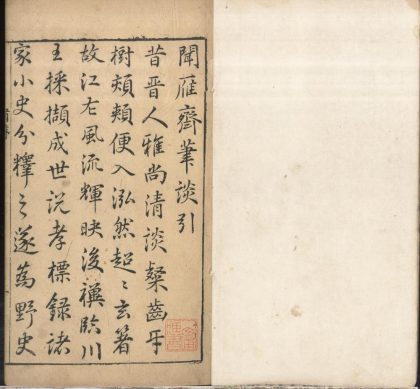 聞雁齋筆談引
昔晉人雅尚清談粲齒牙
樹頰頰便入泓然超〻玄著
故江左風流輝映後禩臨川
王採擷成世說孝標錄諸
家小史分釋之遂為野史